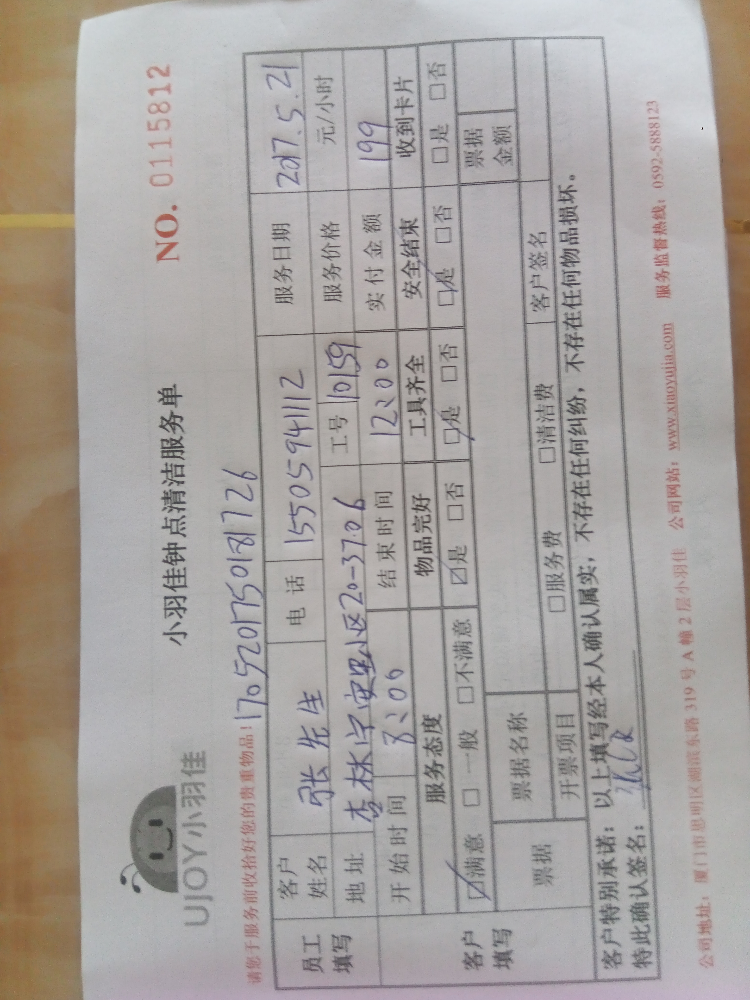 UJOY小羽佳
小羽佳钟点清洁服务单
NO. 0115812
请您于服务前收拾好您的贵重物品!
1705201750181726
员工填写
客户姓名 张先生 电话 15505941112 服务日期 2017.5.21
地址 杏林宁宝里小区20-3706 工号 10159 服务价格 元/小时
开始时间 8:00 结束时间 12:00 实付金额 199
客户填写
服务态度 物品完好 工具齐全 安全结束 收到卡片
☑满意 □一般 □不满意 ☑是 □否 ☑是 □否 ☑是 □否 □是 □否
票据 票据名称 票据金额
开票项目 □服务费 □清洁费 客户签名
客户特别承诺:以上填写经本人确认属实,不存在任何纠纷,不存在任何物品损坏。
特此确认签名:
公司地址:厦门市思明区湖滨东路319号A幢2层小羽佳 公司网站:www.xiaoyujia.com 服务监督热线:0592-5888123